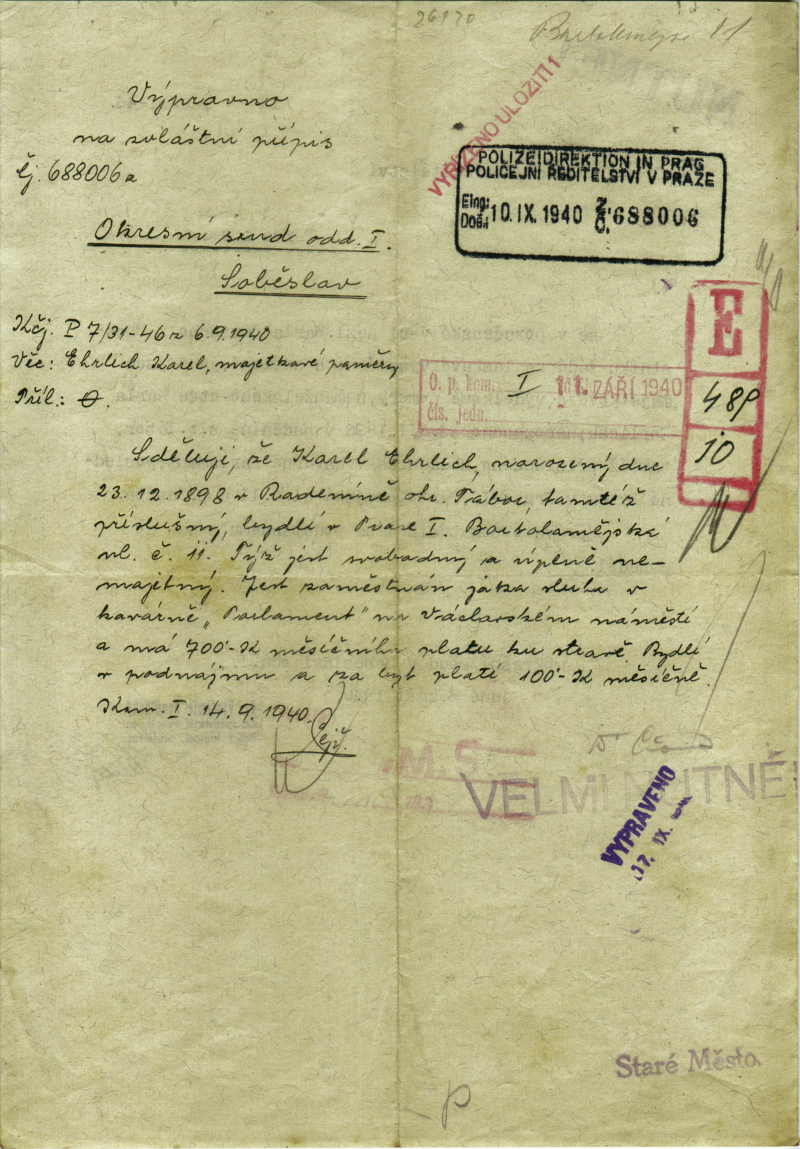 26170
VYŘÍZENO ULOŽITI!
Výpravno
na zvláštní přípis
Čj. 688006 a
POLIZEIDIREKTION IN PRAG
POLICEJNÍ ŘEDITELSTVÍ V PRAZE
Eing.:
Doš.: 10. IX. 1940 688006
Okresní soud odd. I.
Soběslav
Kčj. P 7/31-46 z 6.9.1940
Věc: Ehrlich Karel, majetkové poměry
Příl.: 0.
O. p. kom. I 11. ZÁŘÍ 1940
čís. jedn.
E
489
10
Sděluji, že Karel Ehrlich, narozený dne
23.12.1898 v Radeníně okr. Tábor, tamtéž
příslušný, bydlí v Praze I. Bartolomějská
ul. č. 11. Týž jest svobodný a úplně ne-
majetný. Jest zaměstnán jako sluha v
kavárně „Parlament" na Václavském náměstí
a má 700'-K měsíčního platu ku stravě. Bydlí
v podnájmu a za byt platí 100'-K měsíčně.
Kom. I. 14.9.1940.
VELMI NUTNÉ
VYPRAVENO
17. IX.
Staré Město
P